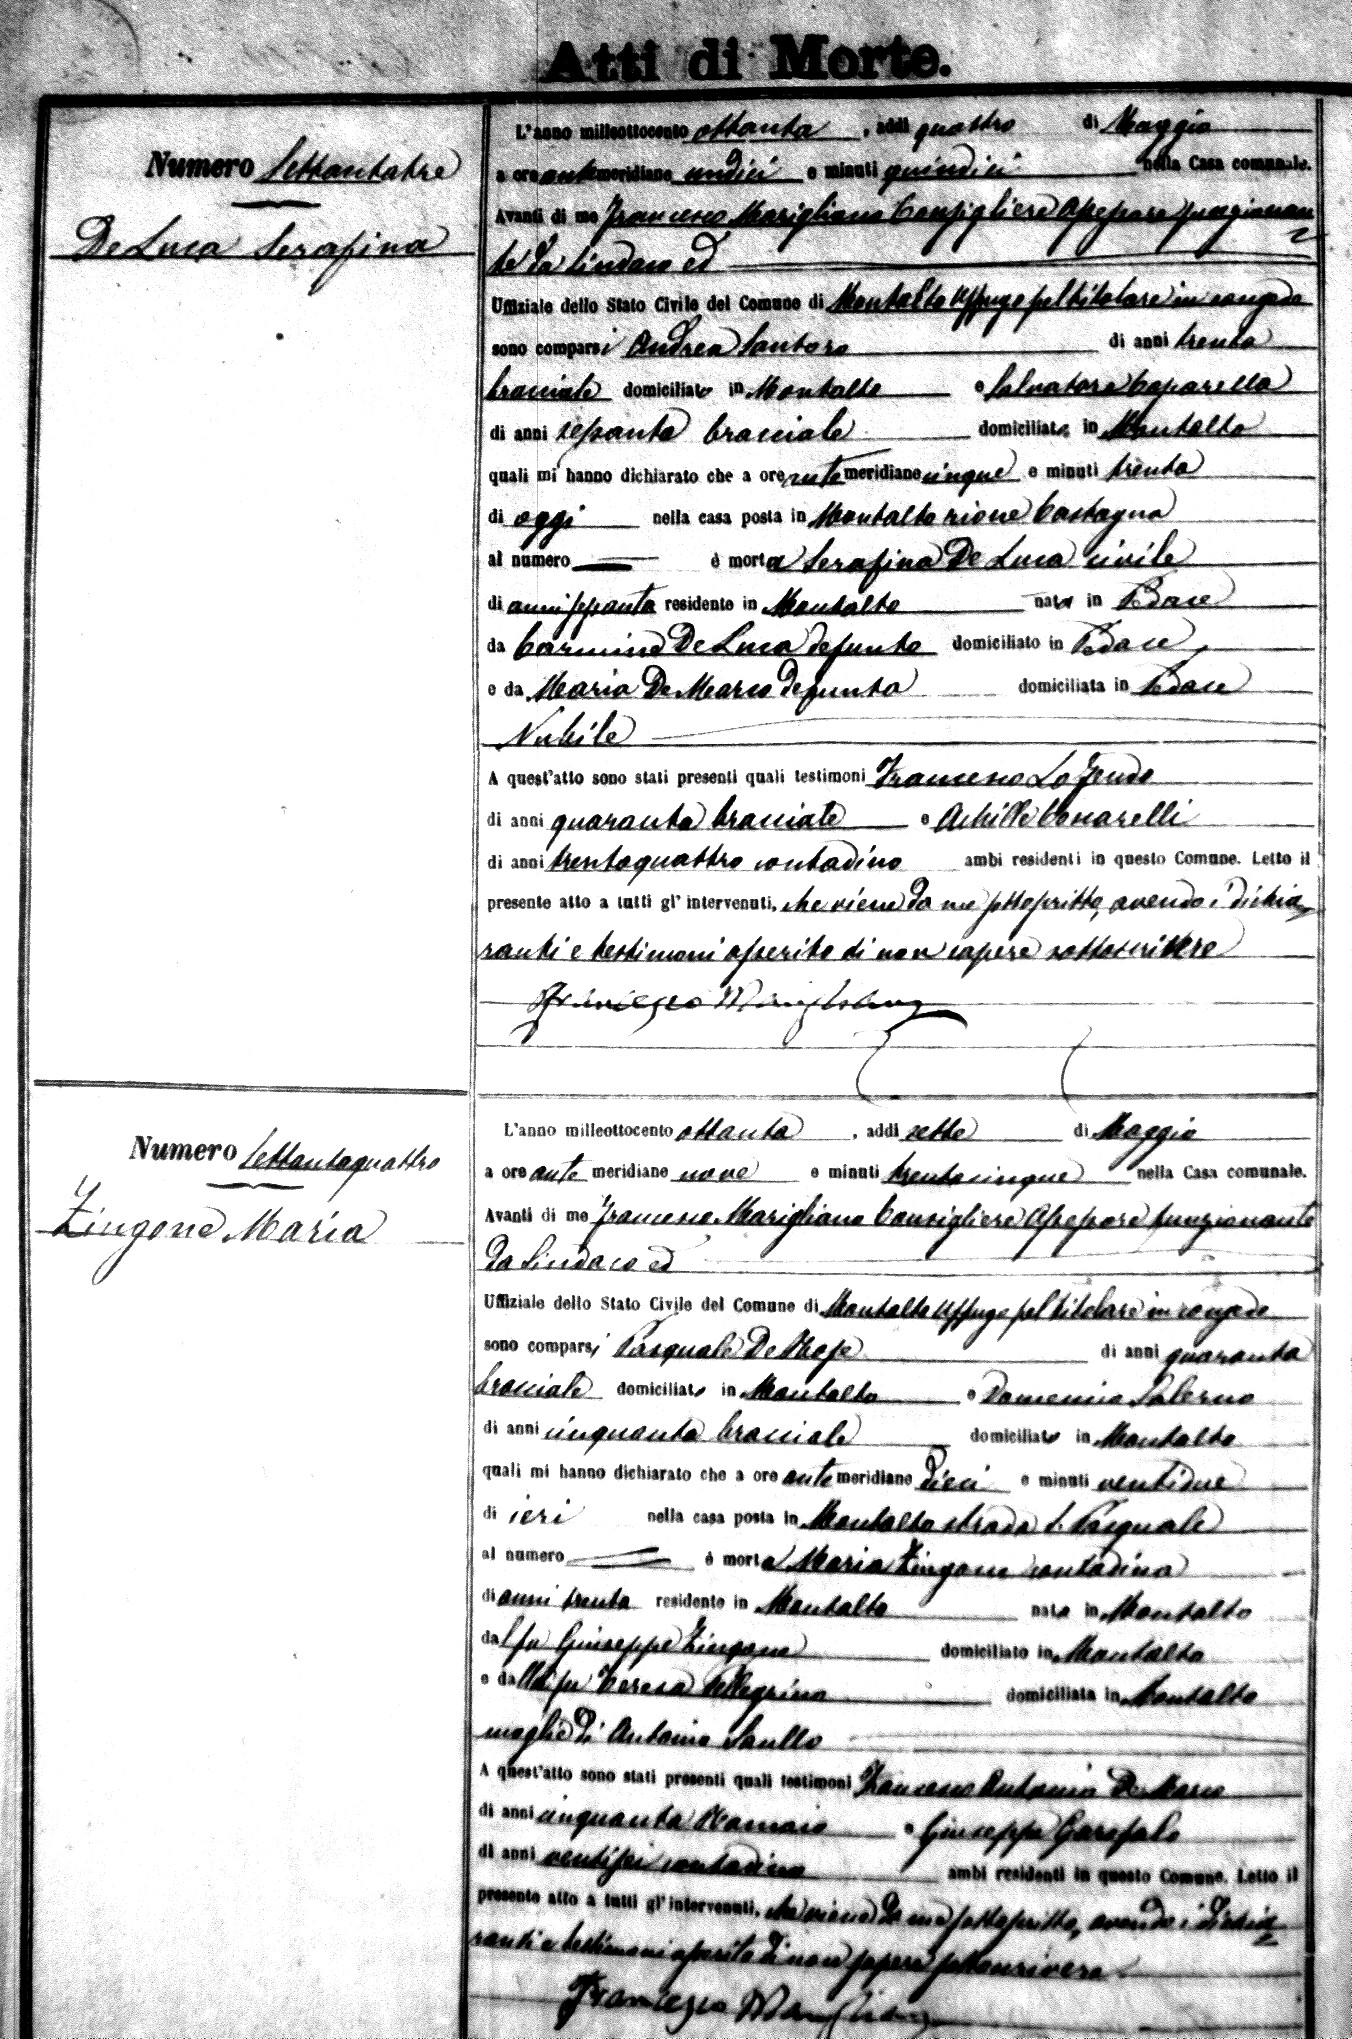 Atti di Morte.
Numero Settantatre
De Luca Serafina
L'anno milleottocento ottanta, addi quattro di Maggio
a ore antemeridiane undici e minuti quindici nella Casa comunale.
Avanti di me Francesco Marigliano Consigliere Assessore funzionan
te da Sindaco ed
Uffiziale dello Stato Civile del Comune di Montalto Uffugo pel titolare in congedo
sono comparsi Andrea Santoro di anni trenta
bracciale domiciliato in Montalto e Salvatore Caparella
di anni sessanta bracciale domiciliato in Montalto
quali mi hanno dichiarato che a ore antemeridiane cinque e minuti trenta
di oggi nella casa posta in Montalto rione Castagna
al numero è morta Serafina De Luca civile
di anni sessanta residente in Montalto nata in Pedace
da Carmine De Luca defunto domiciliato in Pedace
e da Maria De Marco defunta domiciliata in Pedace
Nubile
A quest'atto sono stati presenti quali testimoni Francesco Lo Feudo
di anni quaranta bracciale e Achille
di anni trentaquattro contadino ambi residenti in questo Comune. Letto il
presente atto a tutti gl'intervenuti, che viene da me sottoscritto, avendo i dichia
ranti e testimoni asserito di non sapere sottoscrivere
Francesco Marigliano
Numero Settantaquattro
Zingone Maria
L'anno milleottocento ottanta, addi sette di Maggio
a ore antemeridiane nove e minuti trentacinque nella Casa comunale.
Avanti di me Francesco Marigliano Consigliere Assessore funzionante
da Sindaco ed
Uffiziale dello Stato Civile del Comune di Montalto Uffugo pel titolare in congedo
sono comparsi Pasquale De di anni quaranta
bracciale domiciliato in Montalto e Domenico Salerno
di anni cinquanta bracciale domiciliato in Montalto
quali mi hanno dichiarato che a ore antemeridiane dieci e minuti ventidue
di ieri nella casa posta in Montalto strada S. Pasquale
al numero è morta Maria Zingone contadina
di anni trenta residente in Montalto nata in Montalto
dal fu Giuseppe Zingone domiciliato in Montalto
e dalla fu Teresa Pellegrino domiciliata in Montalto
moglie di Antonio Saullo
A quest'atto sono stati presenti quali testimoni Francesco Antonio De Marco
di anni cinquanta e Giuseppe Garofalo
di anni ventisei contadino ambi residenti in questo Comune. Letto il
presente atto a tutti gl'intervenuti, che viene da me sottoscritto, avendo i dichia
ranti e testimoni asserito di non sapere sottoscrivere
Francesco Marigliano